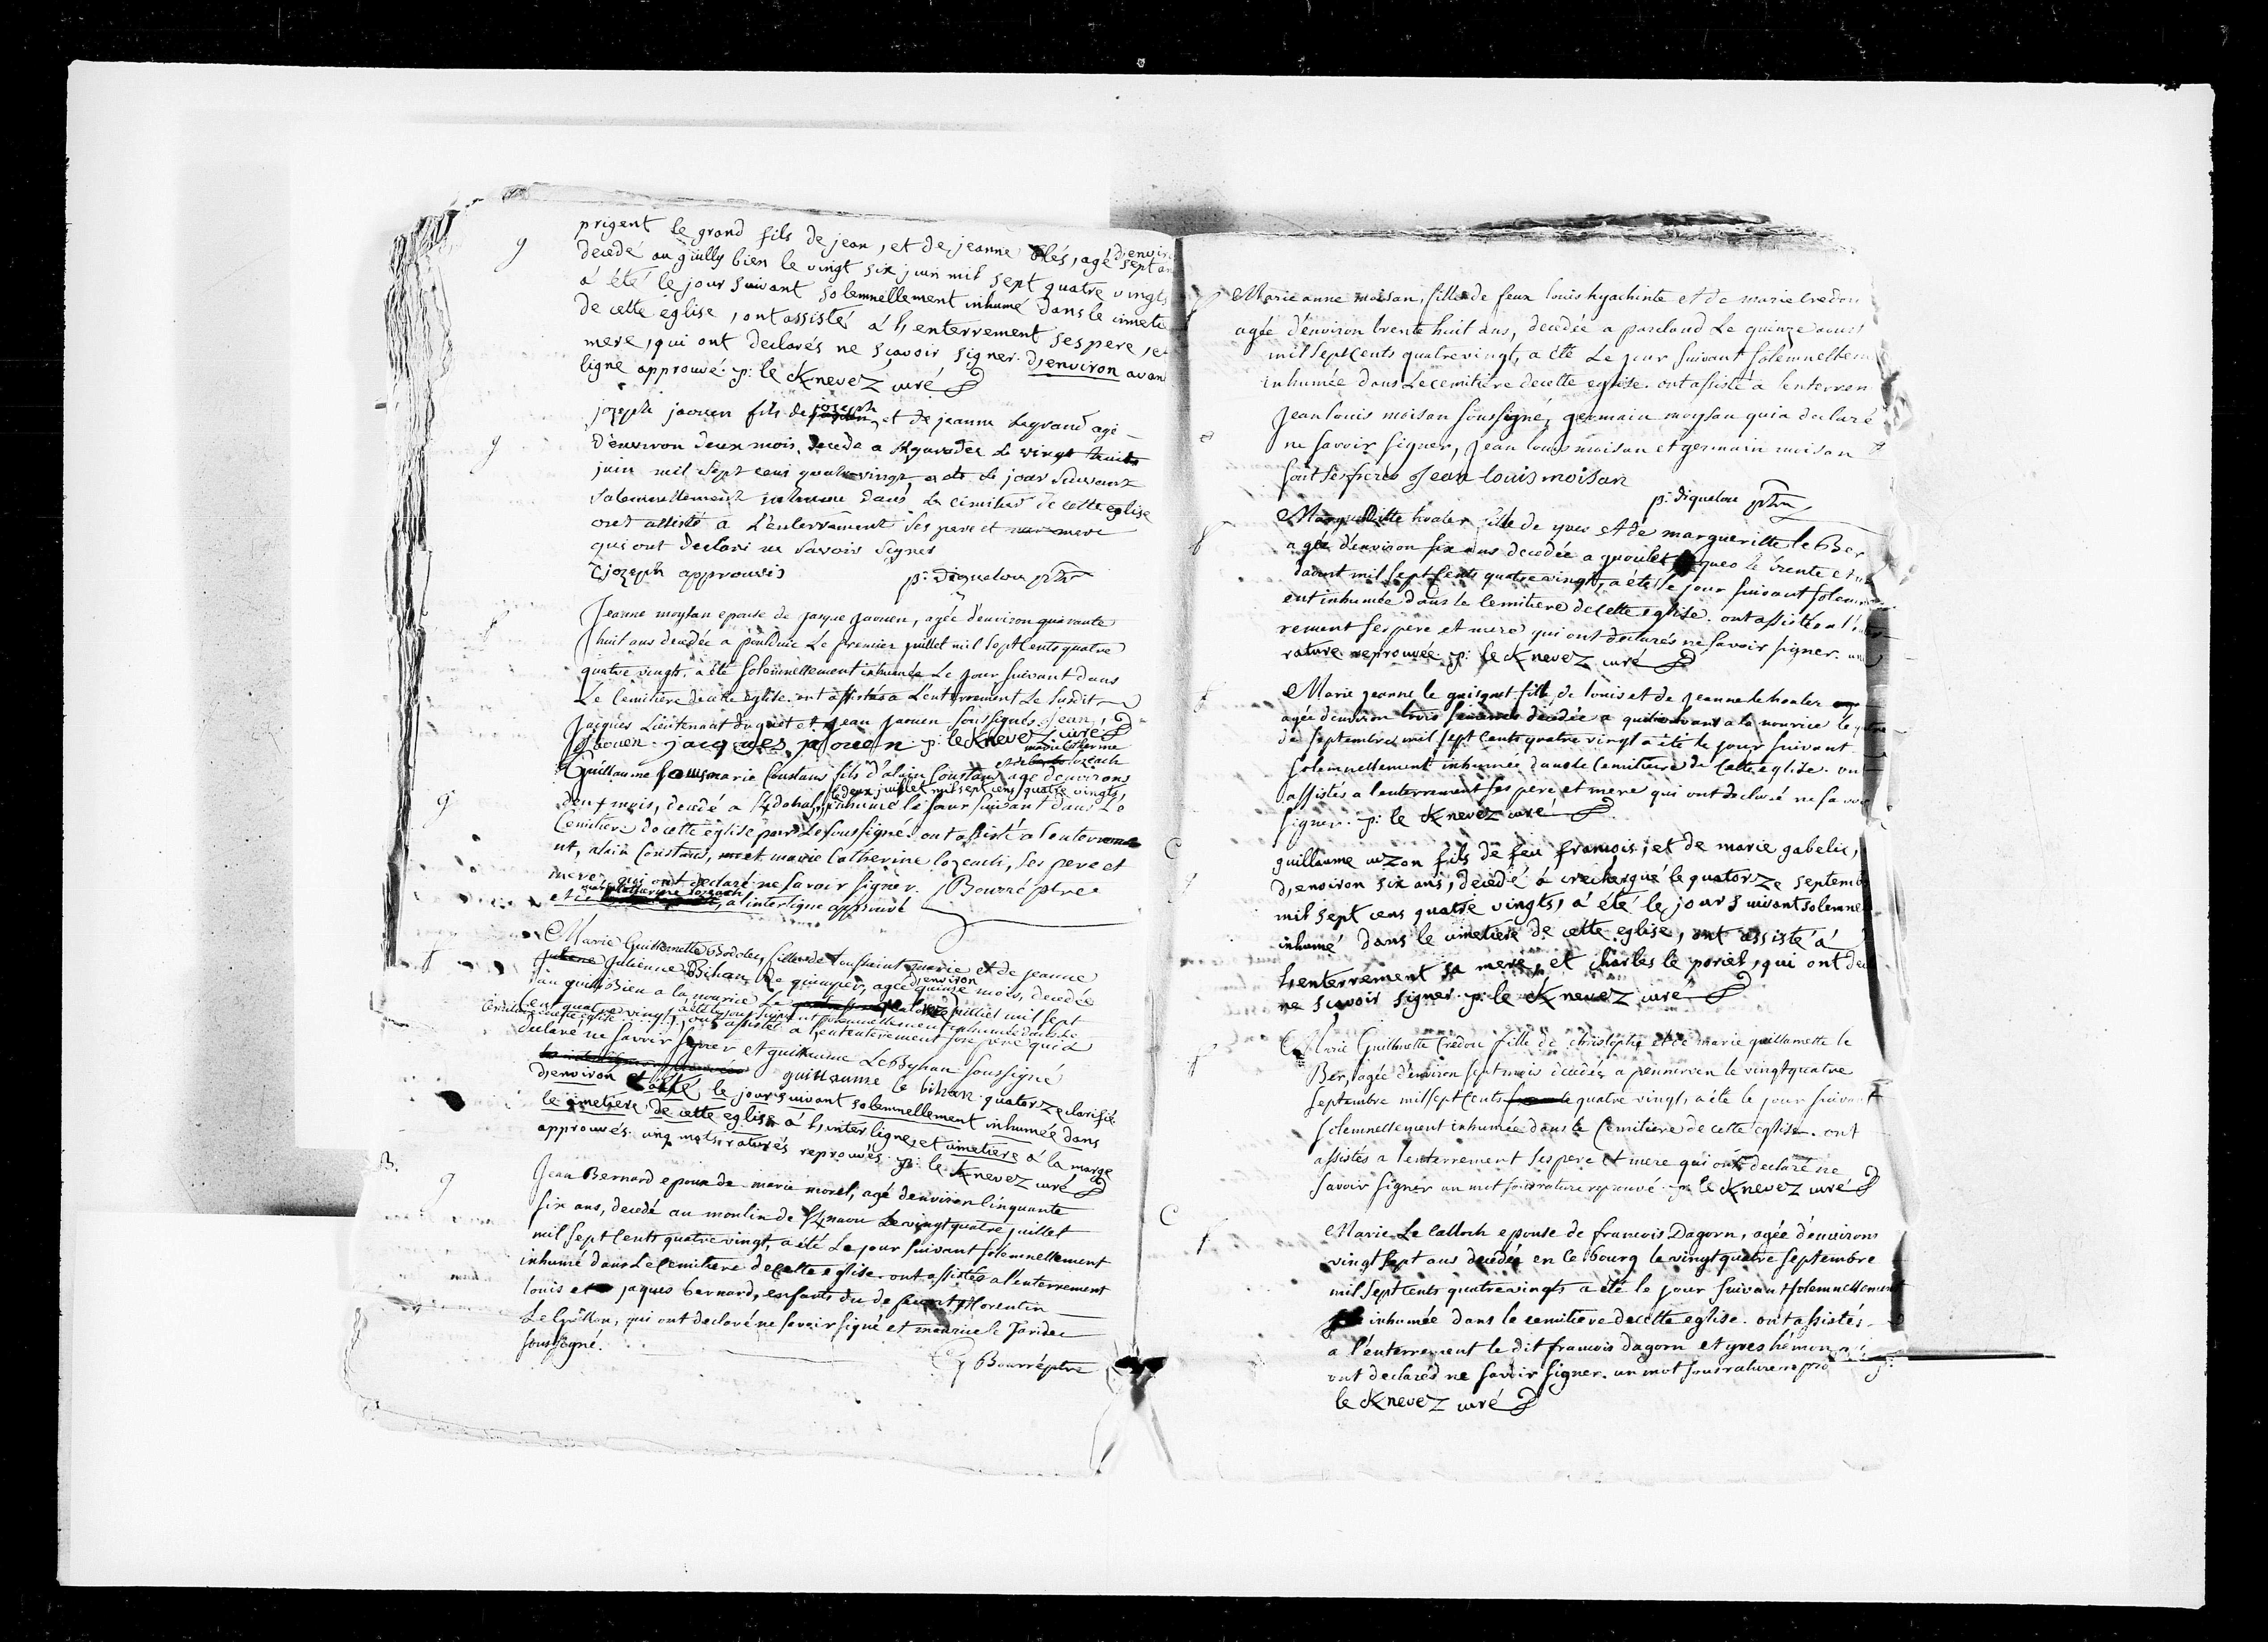 g
prigent le grand fils de jean, et de jeanne blés, agé d'environ
decedé au guilly bien le vingt six juin mil sept quatre vingts
à été le jour suivant solemnellement inhumé dans le cimete
de cette eglise, ont assisté à l'enterrement ses pere, et
mere, qui ont declarés ne scavoir signer. d'environ avan
ligne approuvé. p: le Knevez curé
g
jozeph jaouen fils de joseph et de jeanne Legrand agé
d'environ deux mois, decede a Le vingt huit
juin mil sept cens quatrevingt, a ete le jour suivant
solemnellement inhumé dans Le cimitiere de cette eglise
ont assisté a L'enterrement ses pere et mere
qui ont declaré ne Savoir signer
jozeph approuvés p: diquelou ptre
f
Jeanne moysan epouse de jacque jaouen, agée d'environ quarante
huit ans decedée a pouldu Le premier juillet mil sept Cents quatre
quatre vingt, a été solemnellement inhumée Le jour suivant dans
Le Cemitière de cette eglise. ont assistés a L'enterrement Le susdit
Jacques Lieutenant du guet et jean jaouen soussignés. jean
jaouen. jacques jaouen. p: le Knevez curé
marie Catherine
lozeach
g
Guillaume marie Constans fils d'alain Constans agé denvirons
le deux juillet mil sept cens quatre vingts,
deux mois, decedé a inhumé le jour suivant dans Le
Cemitiere de cette eglise par Le soussigné. ont assisté a l'enterreme
nt, alain Constans, et marie Catherine lozeach, ses pere et
mere, qui ont declaré ne savoir signer. Bourré ptre
marie Catherine lozeach, a l'interligne approuvé
f
Marie Guillemette fille de toussaint marie et de jeanne
julienne Bihan, de quimper, agée d'environ quinze mois, decedée
au quillibien a la nourice Le quatorze juilliet mil sept
Cent quatre vingt, a été le jour suivant solemnellement inhumée dans Le
Cemitiere de cette eglise ont assistés a l'enterrement son pere qui a
declaré ne savoir signer et guillaume Le Byhan soussigné
guillaume le bihan. quatorze clarifié
d'environ et a été le jour suivant solemnellement inhumée dans
le cimetière de cette eglise à l'interligne, et cimetière à la marge
approuvés. cinq mots raturés reprouvés. p: le Knevez curé
B.
g
Jean Bernard epoux de marie morel, agé d'environ Cinquante
six ans, decedé au moulin de Le vingt quatre juillet
mil sept Cents quatre vingt, a été Le jour suivant solemnellement
inhumé dans Le Cemitiere de Cette eglise. ont assistés a l'enterrement
louis et jaques bernard, enfants du defunt, florentin
qui ont declaré ne savoir signé et maurice le
soussigné.
Bourré ptre
f
Marie anne moisan, fille de feux louis hyachinte et de marie credou
agée d'environ trente huit ans, decedée a Le quinze aout
mil sept Cents quatrevingt, a été Le jour suivant solemnellem
inhumée dans Le Cemitière de cette eglise. ont assisté a lenterrem
Jean louis moisan soussigné, germain moysan qui a declaré
ne savoir signer, jean louis moisan et germain moisan
sont ses freres Jean louis moisan
p: diquelou ptre
f
Marguerite fille de yves et de margueritte le Ber
agée d'environ six ans decedée a le trente et un
daout mil sept Cents quatre vingt, a été le jour suivant solem
ent inhumée dans le Cemitiere de Cette eglise. ont assistés a l'enter
rement ses pere et mere qui ont declarés ne savoir signer. une
rature reprouvée. p: le Knevez curé
f
Marie jeanne le guisquet fille de louis et de jeanne
agée d'environ trois semaines decedée a a la nourrice le
de septembre mil sept Cents quatre vingt a été le jour suivant
solemnellement inhumée dans le Cemitiere de Cette eglise. ont
assistés a l'enterrement ses pere et mere qui ont declaré ne savoir
signer. p: le Knevez curé
C
guillaume fils de feu francois, et de marie gabelic,
d'environ six ans, decedé à le quatorze septemb
mil sept cens quatre vingts, à été le jour suivant solemnel
inhumé dans le cimetière de cette eglise, ont assisté à
l'enterrement sa mere, et charles le poriel, qui ont dec
ne scavoir signer. p: le Knevez curé
f
Marie Guillmette Credou fille de christophe et de marie guillamette le
Ber, agée d'environ sept mois decedée a le vingt quatre
septembre mil sept Cents quatre vingt, a été le jour suivant
solemnellement inhumée dans le Cemitiere de cette eglise. ont
assistés a l'enterrement ses pere et mere qui ont declaré ne
savoir signer un mot sous rature reprouvé. p: le Knevez curé
C
f
Marie Le Calloch epouse de francois Dagorn, agée d'environs
vingt sept ans decedée en Ce bourg le vingt quatre septembre
mil sept cents quatre vingts a été le jour suivant solemnellement
inhumée dans le cemitiere de cette eglise. ont assistés
a l'enterrement le dit francois dagorn et yves hémon
ont declarés ne savoir signer. un mot sous rature repro p:
le Knevez curé